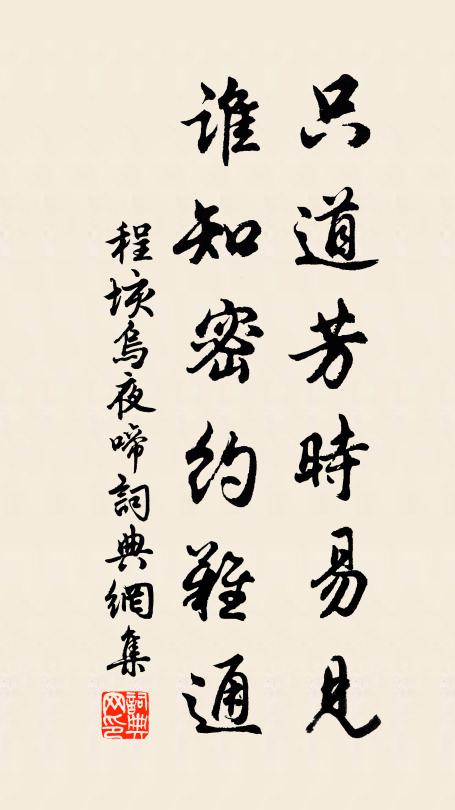 只道芳時易見
誰知密約難通
程垓烏夜啼詞典網集
詞典網印